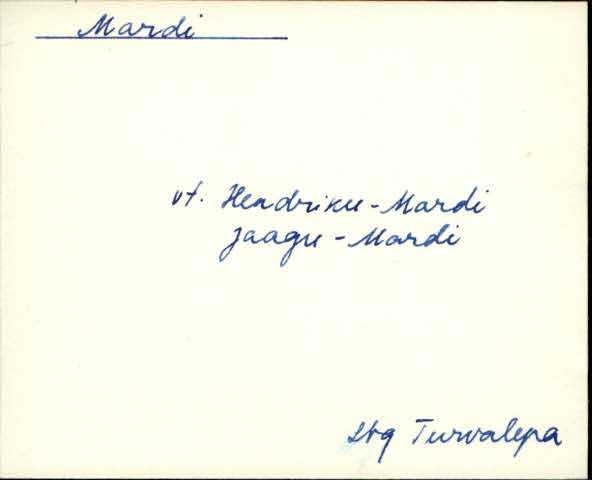 Mardi
vt. Hendriku-Mardi
Jaagu-Mardi
Turvalepa